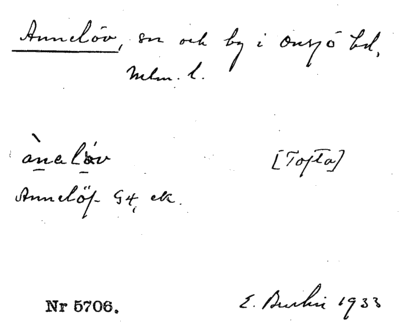 Annelöv, sn och by i Onsjö hd,
Mlm. l.
ànaløv [Tofta]
Annelöf G4, ek.
Nr 5706.
E. 1933